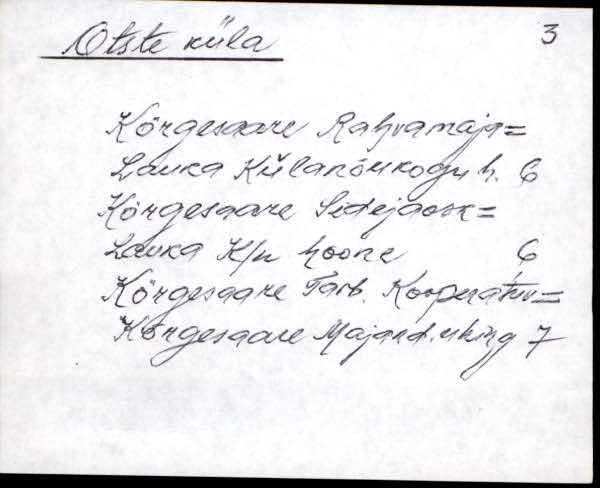 Otste küla 3
Kõrgesaare Rahvamaja=
Lauka Külanõukogu h. 6
Kõrgesaare Sidejaosk=
Lauka K/n hoone 6
Kõrgesaare Tarb. Kooperatiiv=
Kõrgesaare Majand.ühing 7